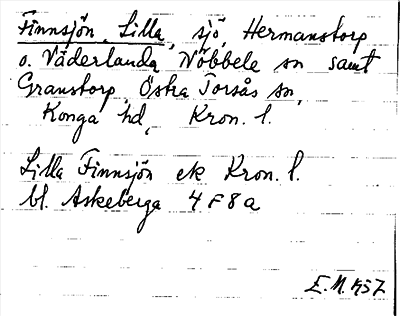 Finnsjön, Lilla, sjö, Hermanstorp
o. Väderlanda, Nöbbele sn samt
Granstorp, Östra Torsås sn,
Konga hd, Kron. l.
Lilla Finnsjön ek Kron. l.
bl. Askeberga 4F8a
E.N. 1957